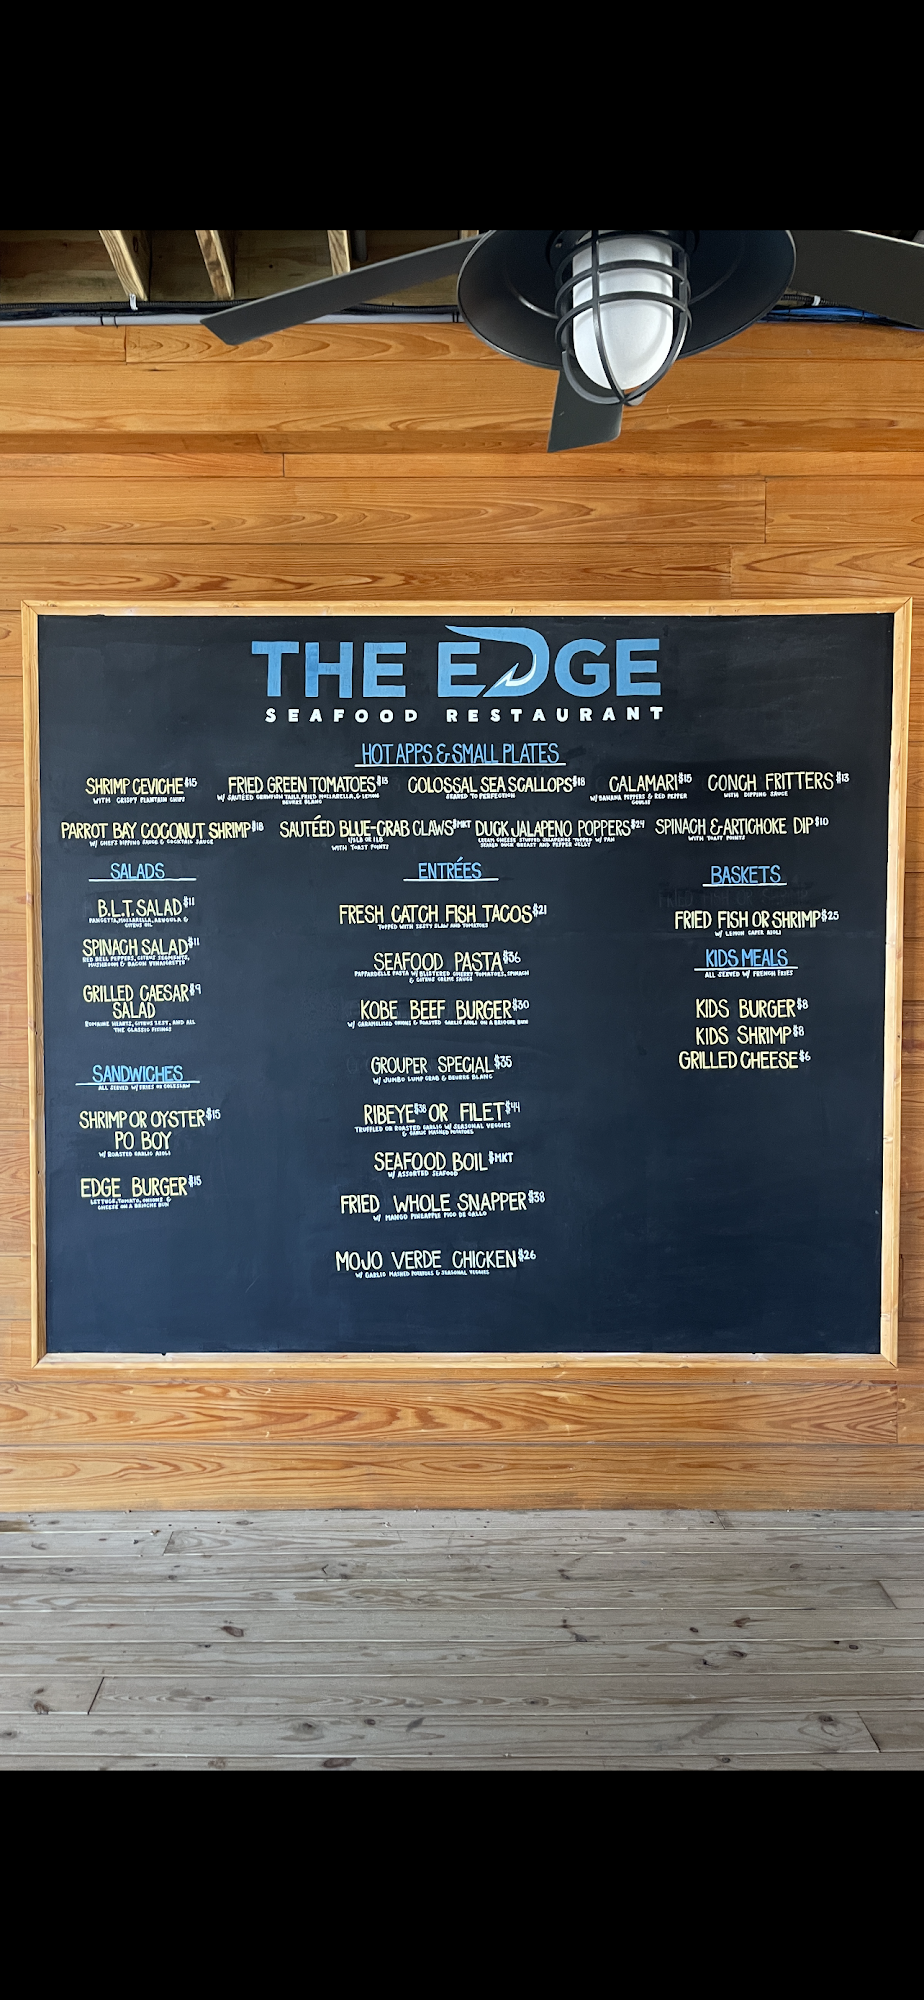 THE EDGE
SEAFOOD RESTAURANT
HOT APPS & SMALL PLATES
SHRIMP CEVICHE $15
WITH CRISPY PLANTAIN CHIPS
FRIED GREEN TOMATOES $13
W/ SAUTÉED CRAWFISH TAILS, FRIED MOZZARELLA, & LEMON
BEURRE BLANC
COLOSSAL SEA SCALLOPS $18
SEARED TO PERFECTION
CALAMARI $15
W/ BANANA PEPPERS & RED PEPPER
COULIS
CONCH FRITTERS $13
WITH DIPPING SAUCE
PARROT BAY COCONUT SHRIMP $18
W/ CHEF'S DIPPING SAUCE & COCKTAIL SAUCE
SAUTÉED BLUE-CRAB CLAWS $MKT
1/2LB OR 1LB
WITH TOAST POINTS
DUCK JALAPENO POPPERS $24
CREAM CHEESE STUFFED JALAPENOS TOPPED W/ PAN
SEARED DUCK BREAST AND PEPPER JELLY
SPINACH & ARTICHOKE DIP $10
WITH TOAST POINTS
SALADS
B.L.T. SALAD $11
PANCETTA, MOZZARELLA, ARUGULA &
CITRUS OIL
SPINACH SALAD $11
RED BELL PEPPERS, CITRUS SEGMENTS,
MUSHROOM & BACON VINAIGRETTE
GRILLED CAESAR $9
SALAD
ROMAINE HEARTS, CITRUS ZEST, AND ALL
THE CLASSIC FIXINGS
SANDWICHES
ALL SERVED W/ FRIES OR COLESLAW
SHRIMP OR OYSTER $15
PO BOY
W/ ROASTED GARLIC AIOLI
EDGE BURGER $15
LETTUCE, TOMATO, ONIONS &
CHEESE ON A BRIOCHE BUN
ENTRÉES
FRESH CATCH FISH TACOS $21
TOPPED WITH ZESTY SLAW AND TOMATOES
SEAFOOD PASTA $36
PAPPARDELLE PASTA W/ BLISTERED CHERRY TOMATOES, SPINACH
& CITRUS CRÈME SAUCE
KOBE BEEF BURGER $30
W/ CARAMELIZED ONIONS & ROASTED GARLIC AIOLI ON A BRIOCHE BUN
GROUPER SPECIAL $35
W/ JUMBO LUMP CRAB & BEURRE BLANC
RIBEYE $38 OR FILET $44
TRUFFLED OR ROASTED GARLIC W/ SEASONAL VEGGIES
& GARLIC MASHED POTATOES
SEAFOOD BOIL $MKT
W/ ASSORTED SEAFOOD
FRIED WHOLE SNAPPER $38
W/ MANGO PINEAPPLE PICO DE GALLO
MOJO VERDE CHICKEN $26
W/ GARLIC MASHED POTATOES & SEASONAL VEGGIES
BASKETS
FRIED FISH OR SHRIMP $25
W/ LEMON CAPER AIOLI
KIDS MEALS
ALL SERVED W/ FRENCH FRIES
KIDS BURGER $8
KIDS SHRIMP $8
GRILLED CHEESE $6